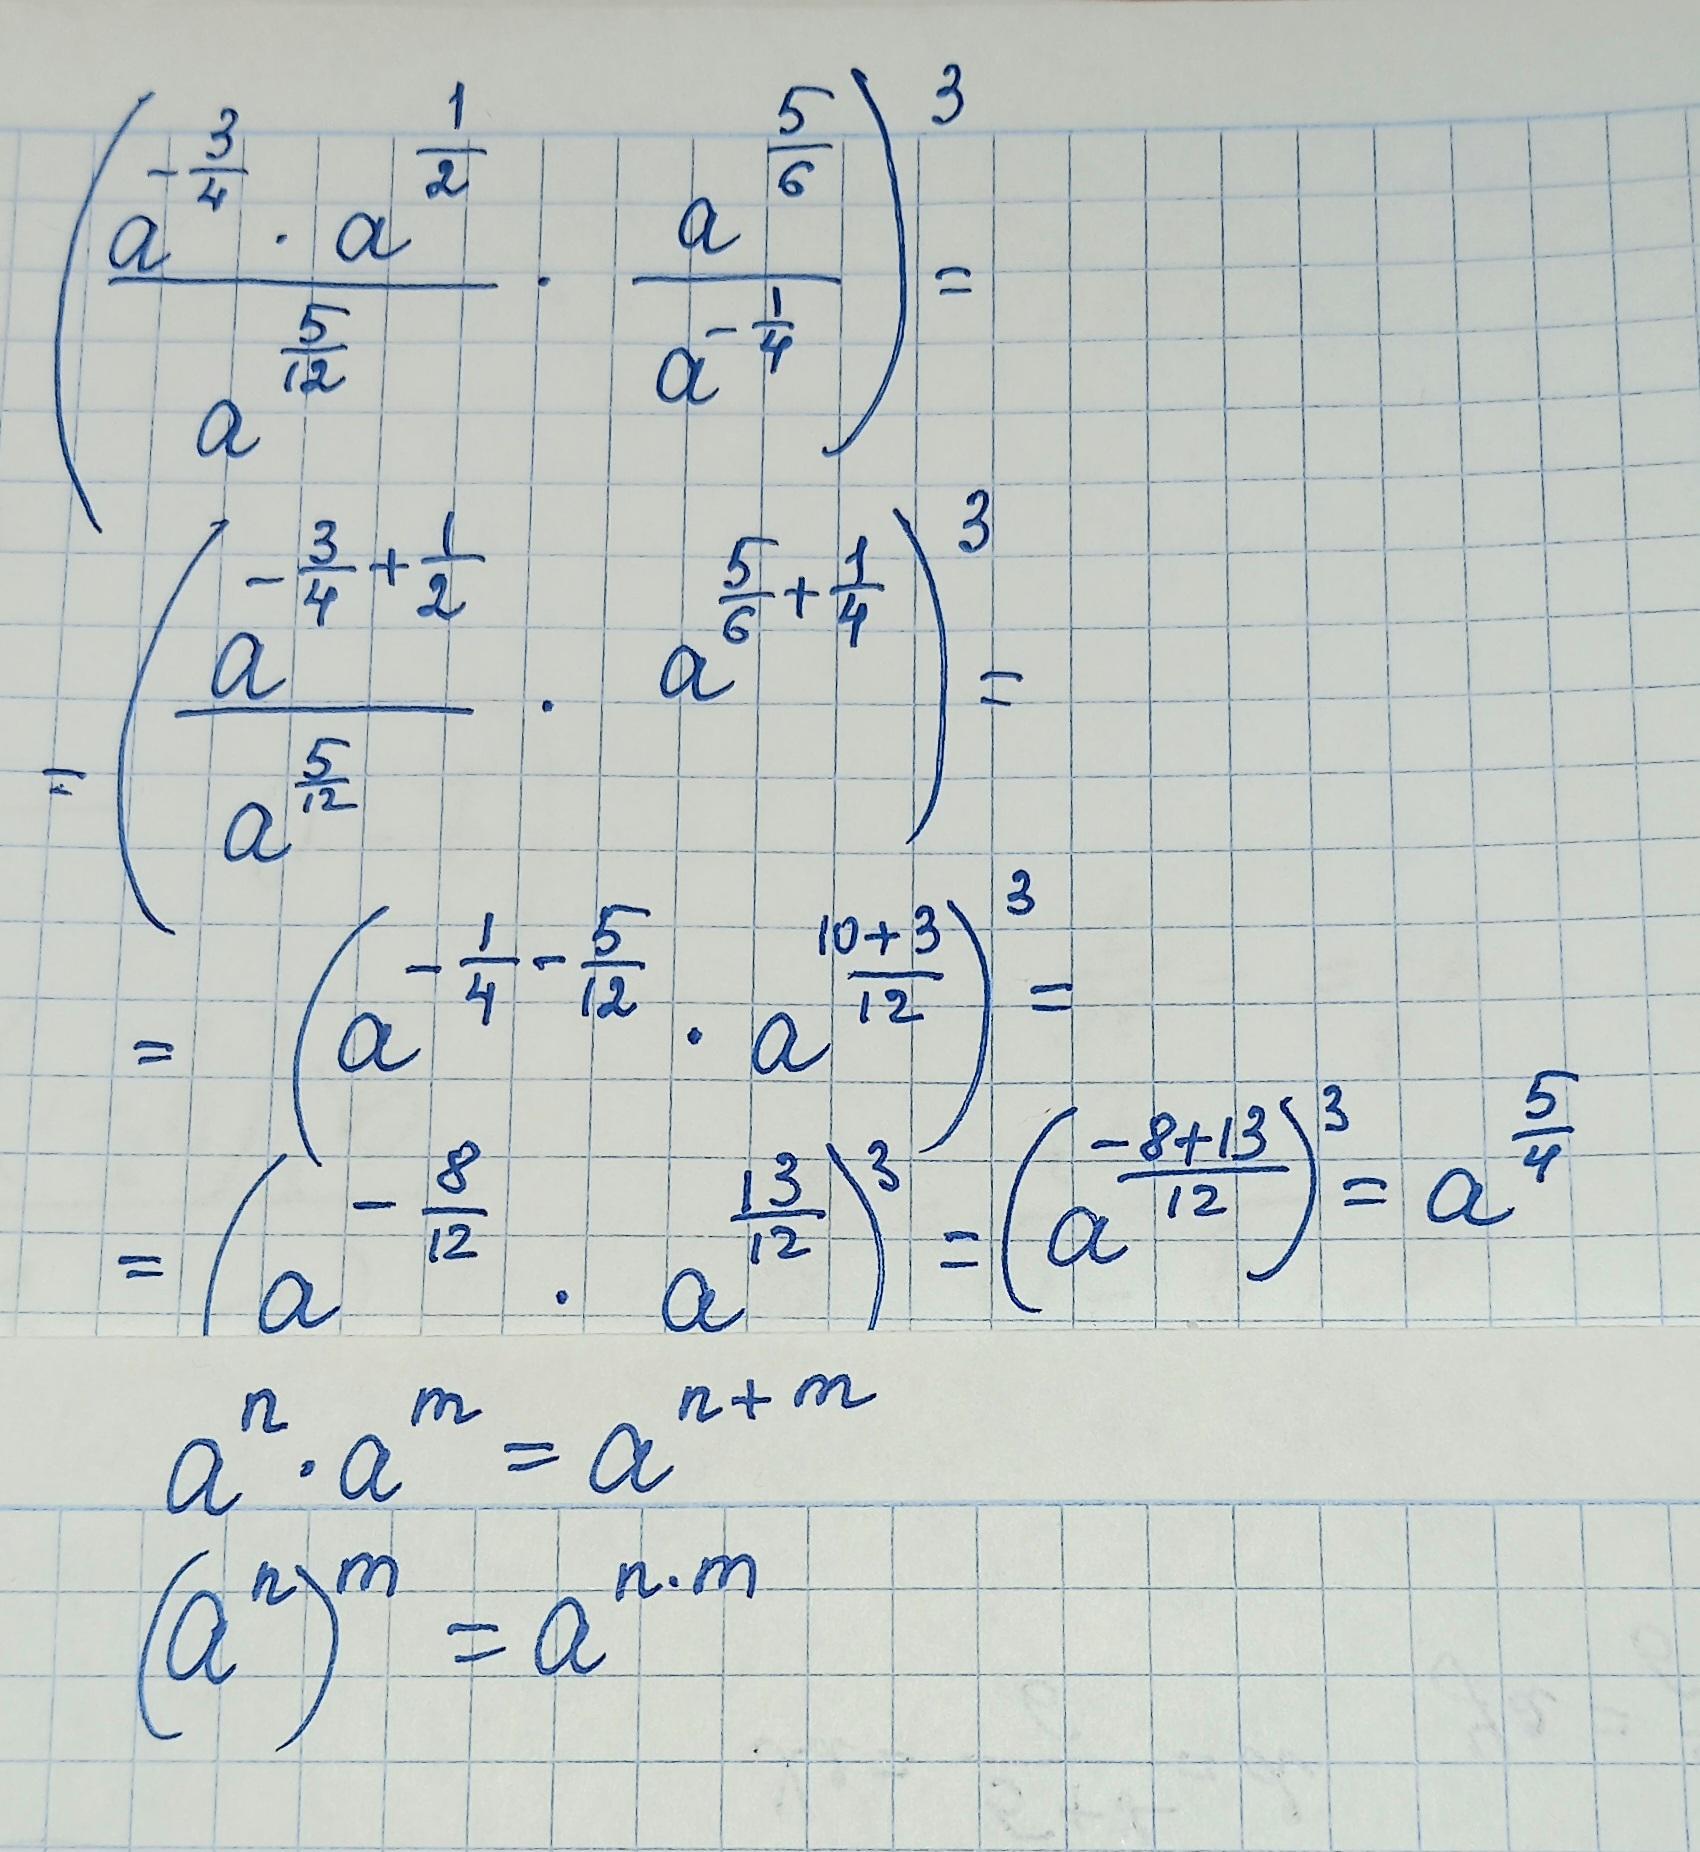 (a^{-\frac{3}{4}} · a^{\frac{1}{2}} / a^{\frac{5}{12}} · a^{\frac{5}{6}} / a^{-\frac{1}{4}})^3 =
= (a^{-\frac{3}{4}+\frac{1}{2}} / a^{\frac{5}{12}} · a^{\frac{5}{6}+\frac{1}{4}})^3 =
= (a^{-\frac{1}{4}-\frac{5}{12}} · a^{\frac{10+3}{12}})^3 =
= (a^{-\frac{8}{12}} · a^{\frac{13}{12}})^3 = (a^{\frac{-8+13}{12}})^3 = a^{\frac{5}{4}}
a^n · a^m = a^{n+m}
(a^n)^m = a^{n·m}